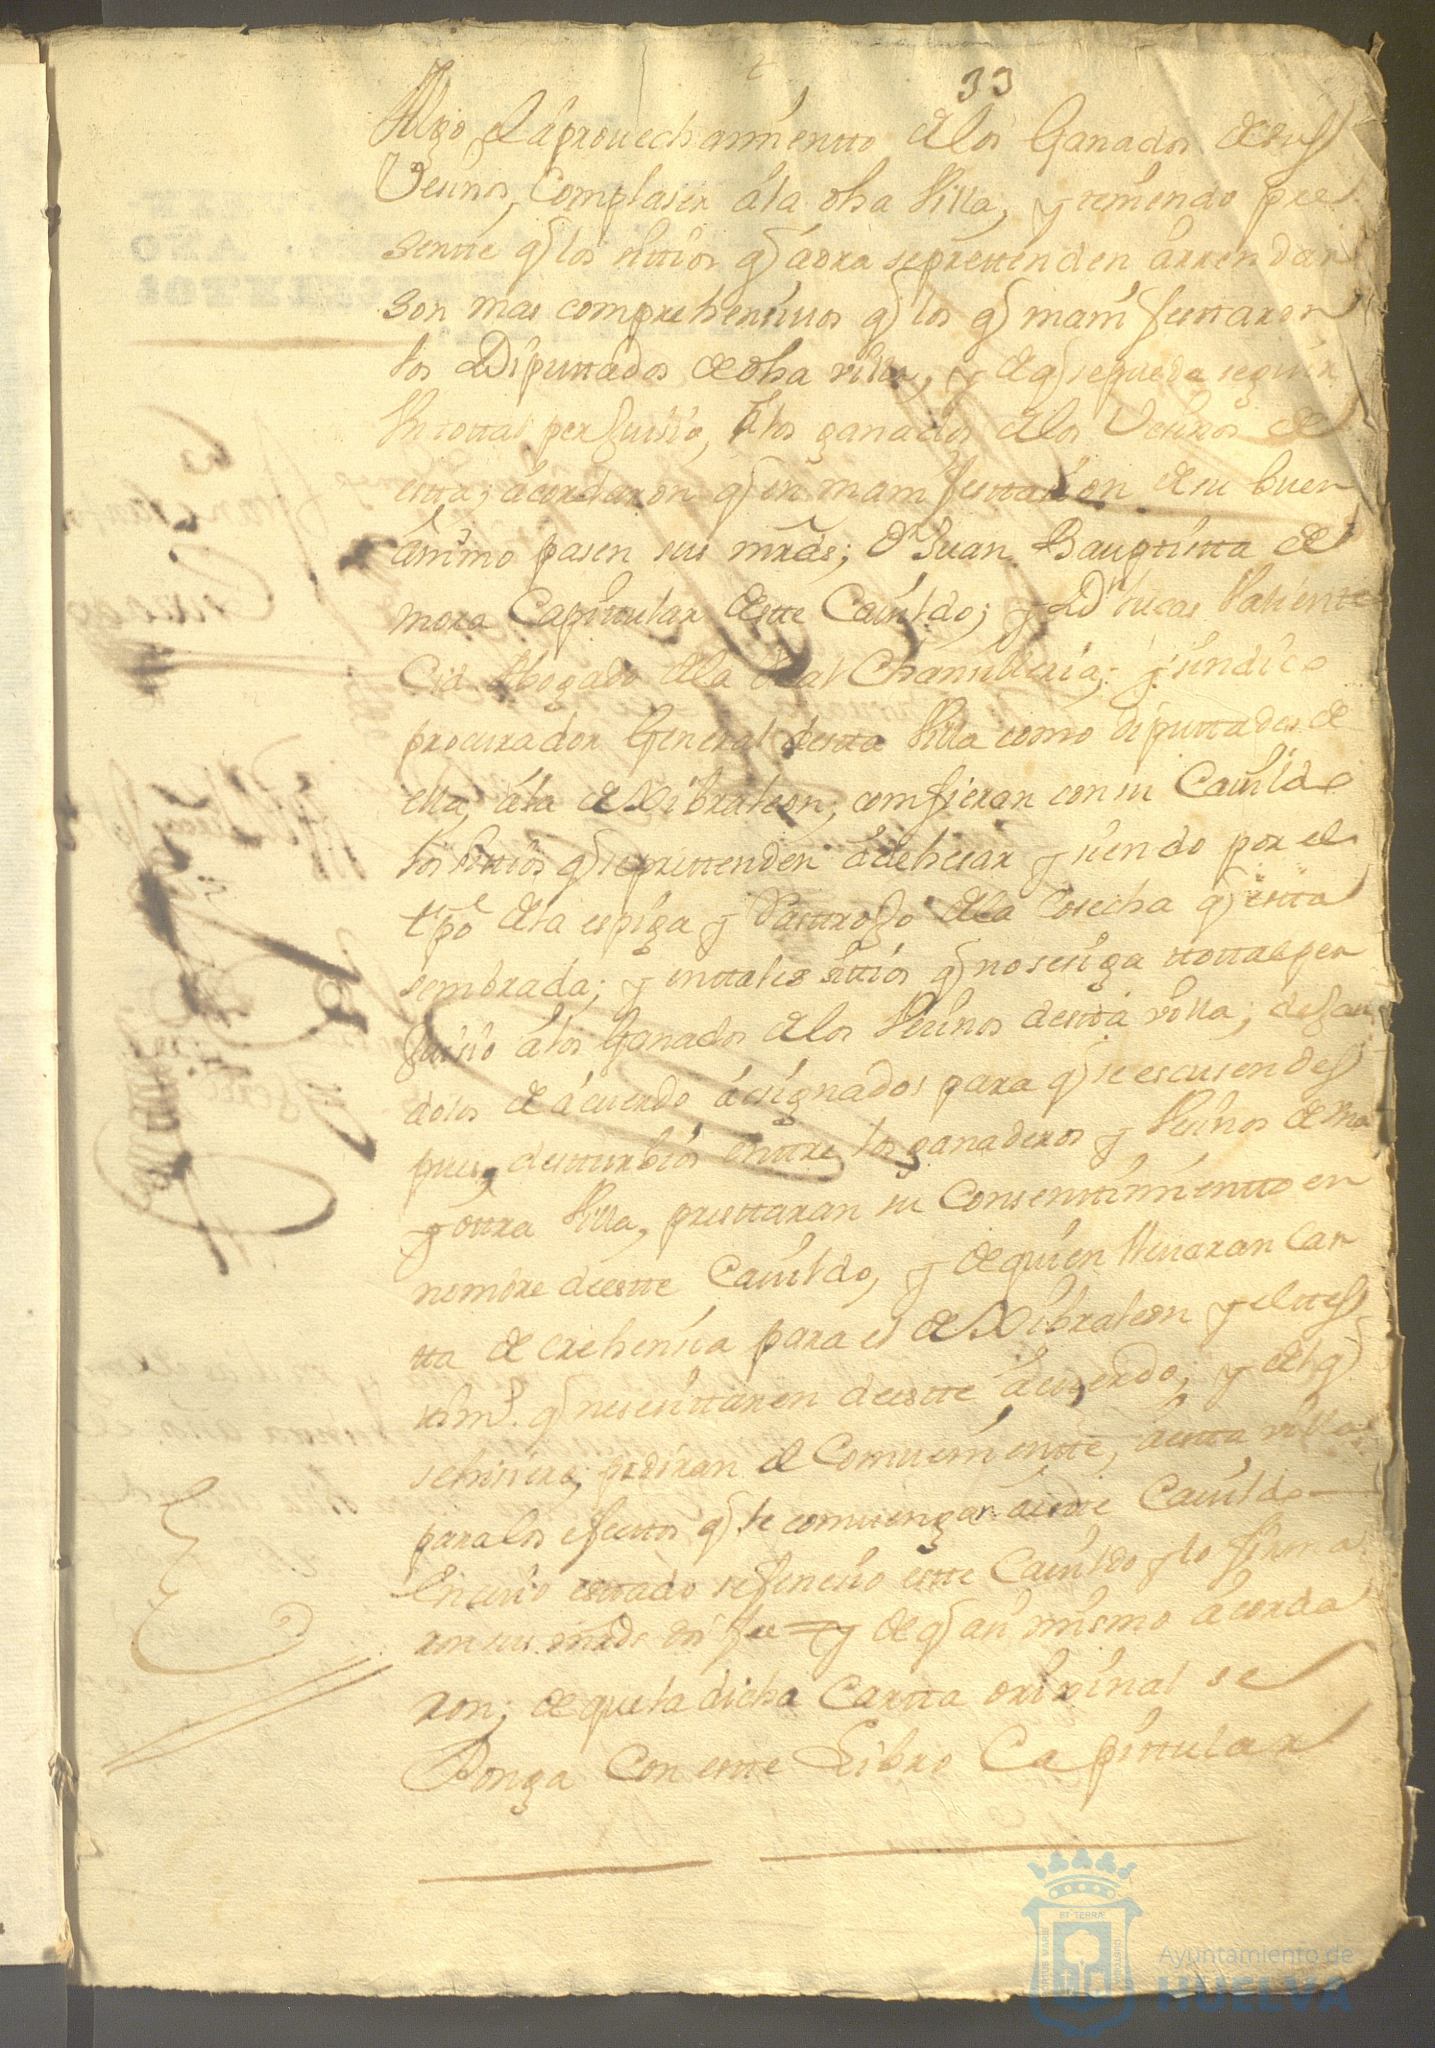 33
Algo el aprouechamientto de los Ganados de sus
Vesinos, Complaser â la dha Villa, y teniendo pre
sentte q los sittios q aora se prettenden arrendar
son mas comprehensiuos q los q manifesttaron
los Diputtados de dha villa, y de q se puede seguir
total perjuisio, â los ganados de los Vesinos de
estta, acordaron q en manifesttasion de su buen
animo pasen sus mrds; Dn Juan Bauptista de
mora Capittular de estte Cauildo; y Dn Lucas Valiente
Cid Abogado de la Real Chansilleria; y sindico
procurador General de estta Villa como diputtados de
ella, â la de Xibraleon; comfieran con su Cauildo
los sittios q se prettenden adehesar y siendo por el
tpo de la espiga y Pasttrojo de la Cosecha q estta
sembrada; y en tales sittios q no se siga ttottal per
juisio â los Ganados de los Vesinos de esta villa; dejan
dolos de acuerdo asignados para q se escusen des
pues, desturbios enttre los ganaderos y Vesinos de una
y ottra Villa, presttaran su Consenttimientto en
nombre de estte Cauildo, y de quien lleuaran Car
tta de crehensia para el de Xibraleon y el ttes
timo. q nesesittaren de estte acuerdo; y del q
se hisiere, pediran el Comuenientte, â estta villa
para los efectos q le comuengan â estte Cauildo
En cuio esttado se fenesio estte Cauildo y lo firma
ron sus mrds doi fee = y de q asi mismo acorda
ron; de que la dicha Cartta original se
Ponga Con estte Libro Capittular
ET TERRÆ
Ayuntamiento de
HUELVA